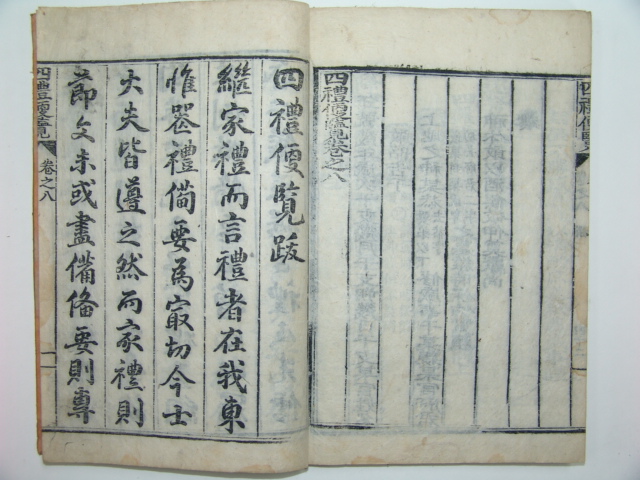 四禮便覽卷之八
四禮便覽跋
繼家禮而言禮者在我東
惟喪禮備要為冣切今士
大夫皆遵之然而家禮則
節文未或盡備備要則專
四禮便覽
卷之八
一